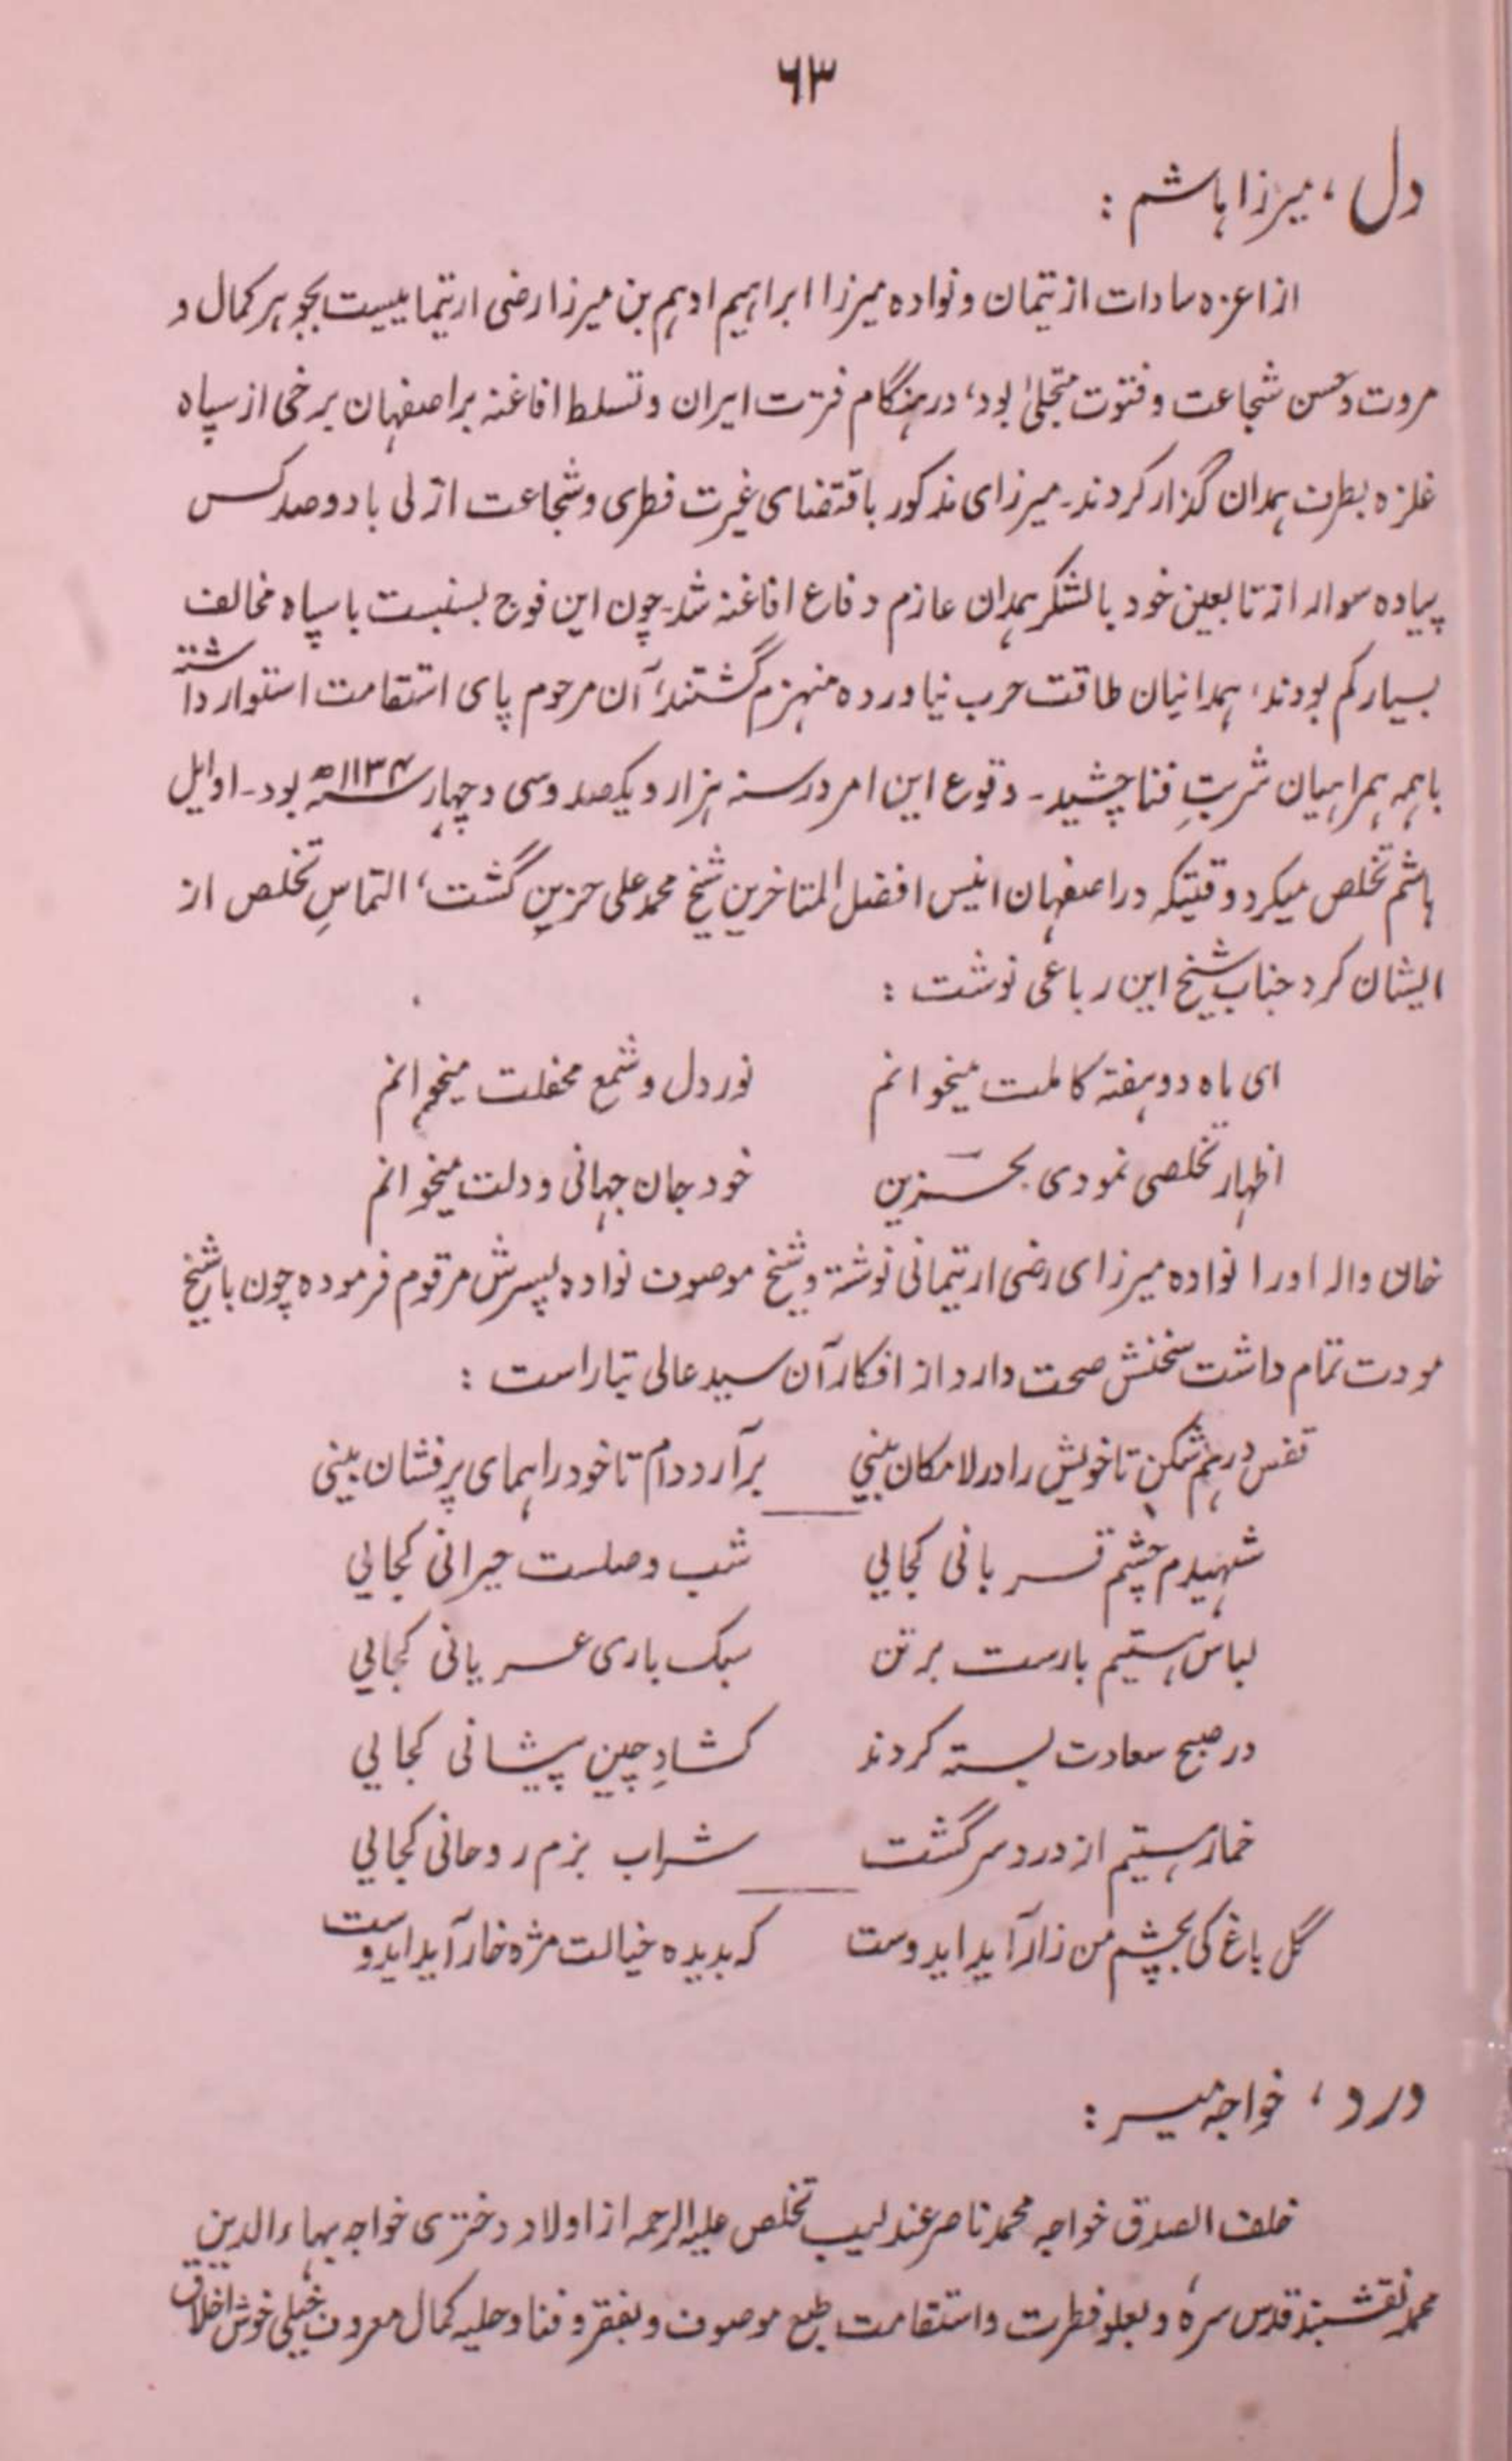 ۶۳
دل، میرزا ہاشم :
از اعزہ سادات از تیمان و نوادہ میرزا ابراہیم ادہم بن میرزا رضی ارتیمانیست بجوہر کمال و
مروت و حسن شجاعت و فتوت متجلیٰ بود، در ہنگام فترت ایران و تسلط افاغنہ بر اصفہان برخی از سپاہ
غلزہ بطرف ہمدان گذار کردند۔ میرزای مذکور باقتضای غیرت فطری و شجاعت ازلی با دو صد کس
پیادہ سوار از تابعین خود با لشکر ہمدان عازم دفاع افاغنہ شد۔ چون این فوج بنسبت با سپاہ مخالف
بسیار کم بودند، ہمدانیان طاقت حرب نیاوردہ منہزم گشتند، آن مرحوم پای استقامت استوار داشتہ
باہمہ ہمراہیان شربتِ فنا چشید۔ وقوع این امر در سنہ ہزار و یکصد و سی و چہار سنہ ۱۱۳۴ھ بود۔ اوایل
ہاشم تخلص میکرد وقتیکہ در اصفہان انیس افضل المتاخرین شیخ محمد علی حزین گشت، التماسِ تخلص از
ایشان کرد جناب شیخ این رباعی نوشت :
ای ماہ دو ہفتہ کاملت میخوانم نور دل و شمع محفلت میخوانم
اظہار تخلصی نمودی بحزین خود جان جہانی و دلت میخوانم
خان والہ او را نوادہ میرزای رضی ارتیمانی نوشتہ و شیخ موصوف نوادہ پسرش مرقوم فرمودہ چون با شیخ
مودت تمام داشت سخنش صحت دارد از افکار آن سید عالی تبار است :
قفس در ہم شکن تا خویش را در لامکان بینی برآر دوام تا خود را ہمای پرفشان بینی
شہیدم چشم قربانی کجایی شب وصلست حیرانی کجایی
لباس ہستیم بارست بر تن سبک باری عریانی کجایی
در صبح سعادت بستہ کردند کشادِ چین پیشانی کجایی
خمار ہستیم از درد سر گشت شراب بزم روحانی کجایی
گل باغ کی بچشم من زار آید ایدوست کہ بدیدہ خیالت مژہ خار آید ایدوست
درد، خواجہ میر :
خلف الصدق خواجہ محمد ناصر عندلیب تخلص علیہ الرحمہ از اولاد دختری خواجہ بہاء الدین
محمد نقشبند قدس سرہٗ و بعلو فطرت و استقامت طبع موصوف و بفقر و فنا و حلیہ کمال معروف خیلی خوش اخلاق